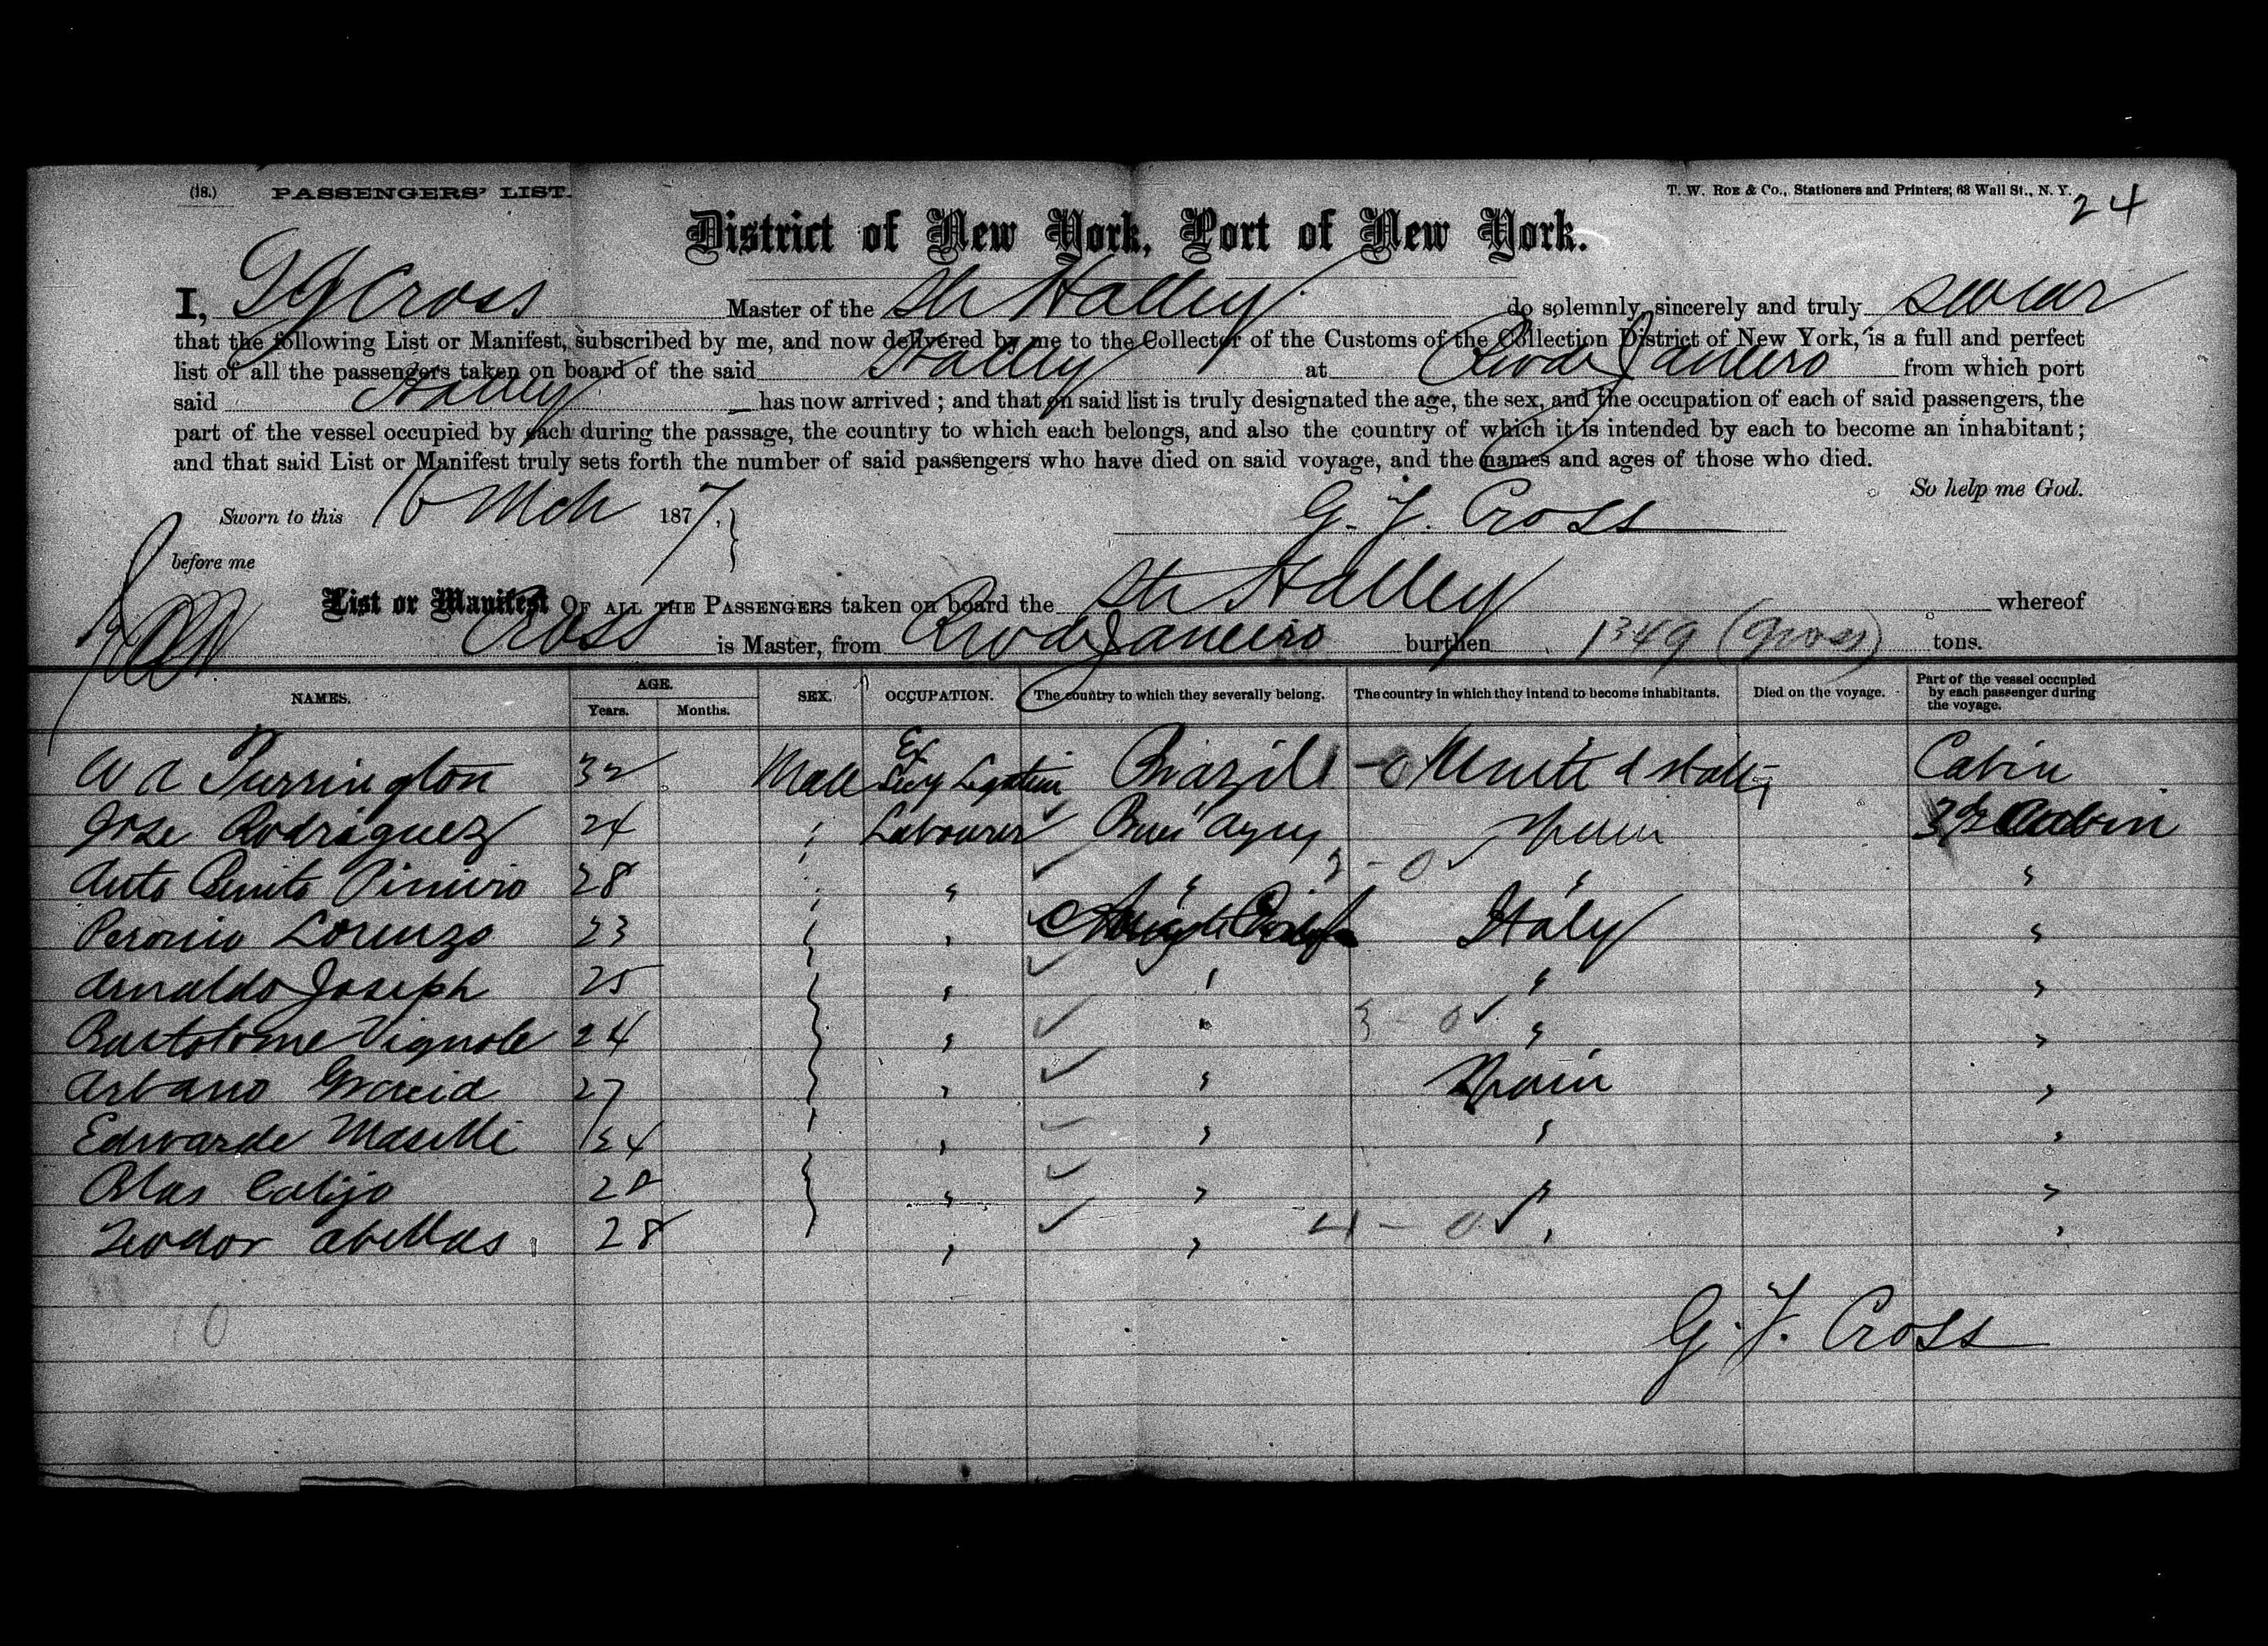 (18.) PASSENGERS' LIST. T. W. ROE & Co., Stationers and Printers, 68 Wall St., N. Y. 24
District of New York, Port of New York.
I, G J Cross Master of the Str Halley do solemnly, sincerely and truly swear
that the following List or Manifest, subscribed by me, and now delivered by me to the Collector of the Customs of the Collection District of New York, is a full and perfect
list of all the passengers taken on board of the said Halley at Rio de Janeiro from which port
said Halley has now arrived; and that on said list is truly designated the age, the sex, and the occupation of each of said passengers, the
part of the vessel occupied by each during the passage, the country to which each belongs, and also the country of which it is intended by each to become an inhabitant;
and that said List or Manifest truly sets forth the number of said passengers who have died on said voyage, and the names and ages of those who died.
So help me God.
Sworn to this 16 Mch 1877. G. J. Cross
before me
List or Manifest OF ALL THE PASSENGERS taken on board the Str Halley whereof
Cross is Master, from Rio de Janeiro burthen 1349 (gross) tons.
NAMES. AGE. Years. Months. SEX. OCCUPATION. The country to which they severally belong. The country in which they intend to become inhabitants. Died on the voyage. Part of the vessel occupied by each passenger during the voyage.
W A Purrington 32 Male Ex Secy Legation Brazil 1 - 0 United States Cabin
Jose Rodriguez 24 " Labourer Buenos Ayres Spain Cabin
Anto Benito Pineiro 28 " " " 2 - 0 " "
Peronio Lorenzo 23 " Italy "
Arnaldo Joseph 25 " " " "
Bartolome Vignole 24 " " 3 - 0 " "
Arbano Gracid 27 " " Spain "
Edwarde 24 " " " "
Blas Calijo 28 " " " "
Teodor Abellas 28 " " 4 - 0 " "
10
G. J. Cross